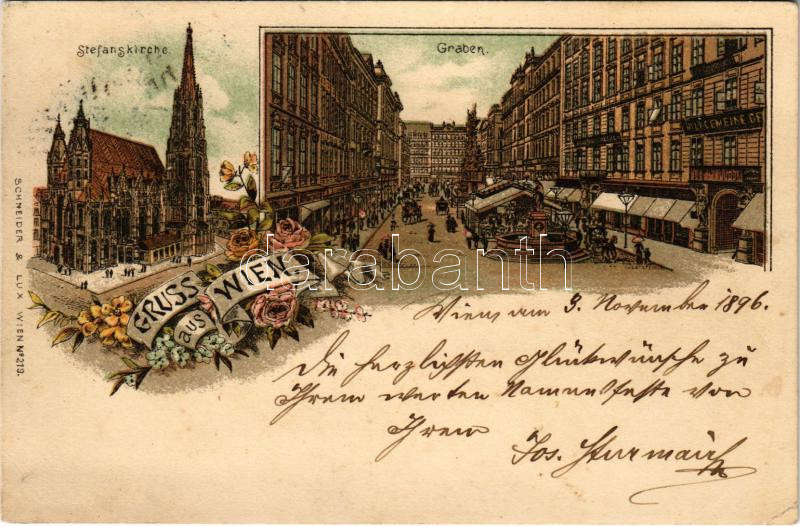 Stefanskirche.
Graben.
ALLGEMEINE DE
SCHNEIDER & LUX WIEN Nº 219.
GRUSS
aus
WIEN
darabanth
Wien am 3. November 1896.
Die herzlichsten Glückwünsche zu
Ihrem werten Namensfeste von
Ihrem
Jos. Sturmair